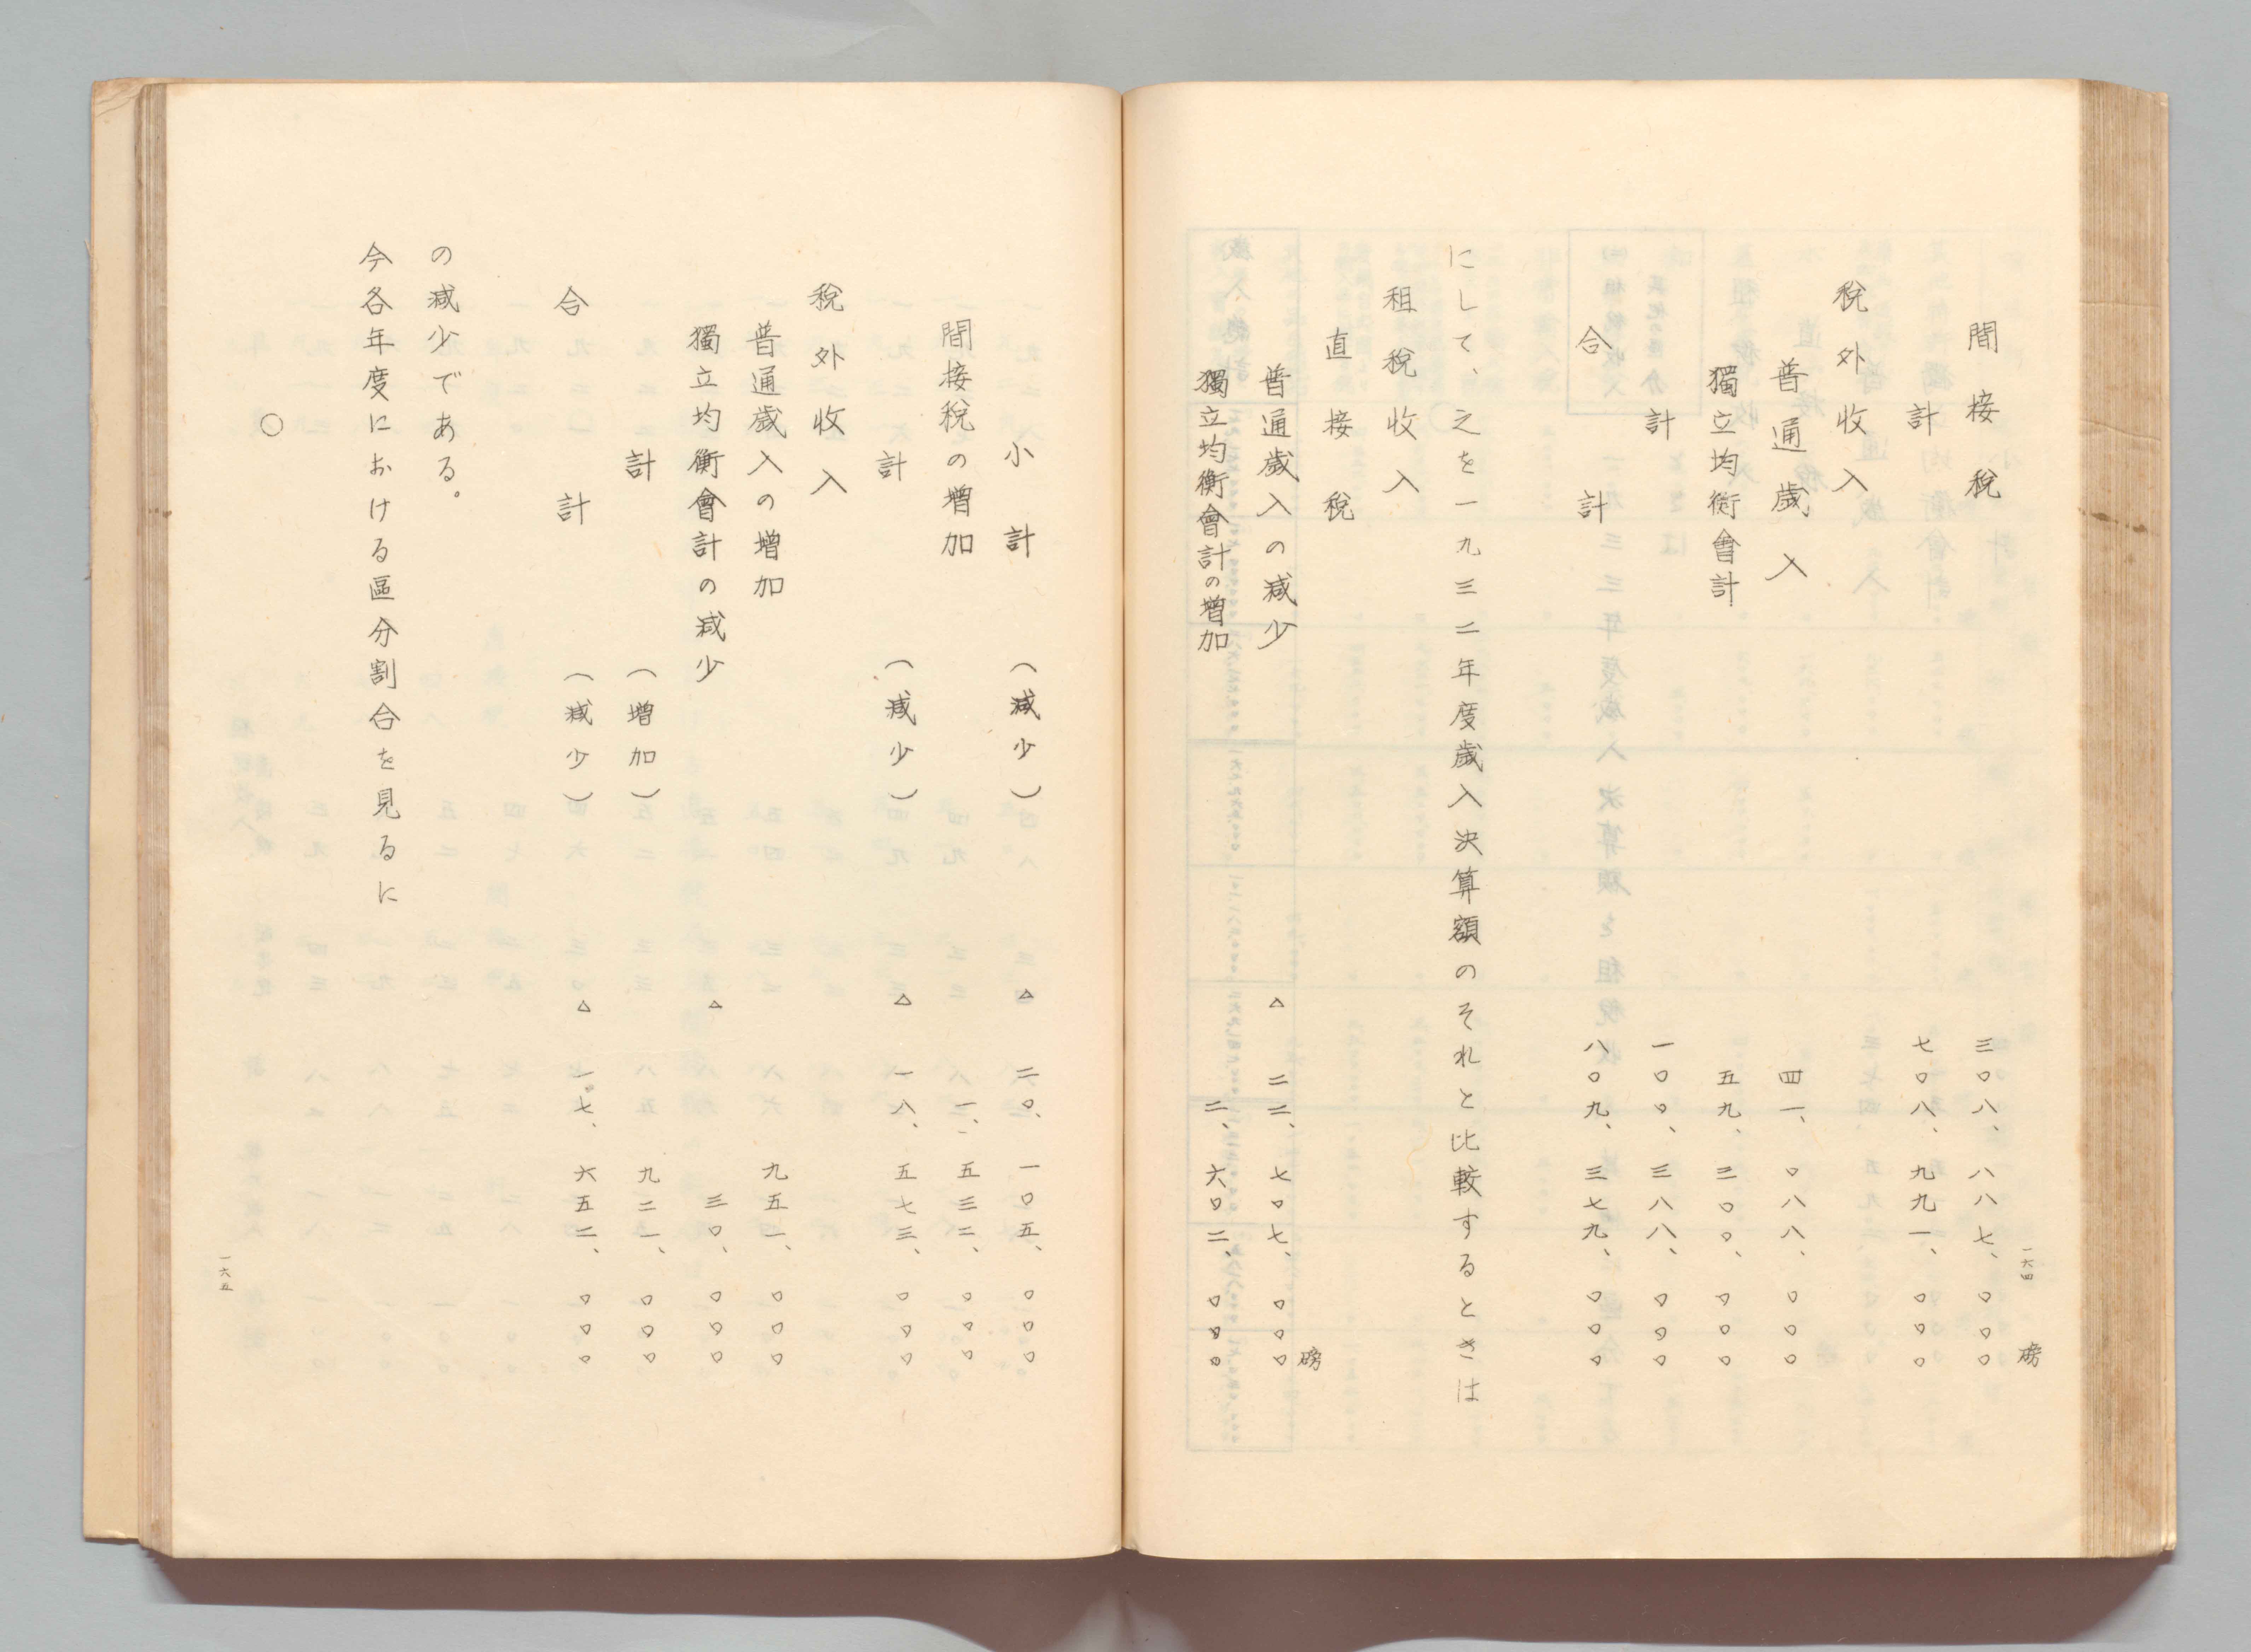 一六四
磅
間接税　三〇八、八八七、〇〇〇
計　七〇八、九九一、〇〇〇
税外收入
普通歳入　四一、〇八八、〇〇〇
獨立均衡會計　五九、三〇〇、〇〇〇
計　一〇〇、三八八、〇〇〇
合計　八〇九、三七九、〇〇〇
にして、之を一九三二年度歳入決算額のそれと比較するときは
租税收入
直接税
磅
普通歳入の減少　△二二、七〇七、〇〇〇
獨立均衡會計の増加　二、六〇二、〇〇〇
小計（減少）　△二〇、一〇五、〇〇〇
間接税の増加　一、五三二、〇〇〇
計（減少）　△一八、五七三、〇〇〇
税外收入
普通歳入の増加　九五一、〇〇〇
獨立均衡會計の減少　△三〇、〇〇〇
計（増加）　九二一、〇〇〇
合計（減少）　△一七、六五二、〇〇〇
の減少である。
今各年度における區分割合を見るに
〇
一六五